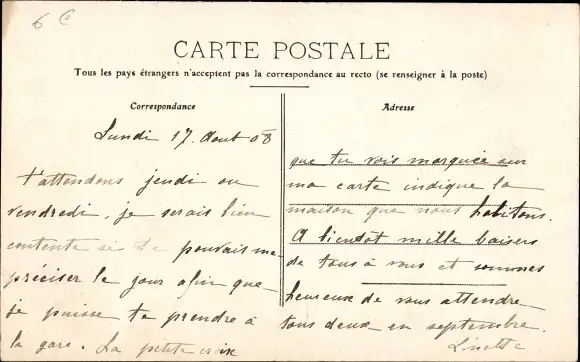 6 c
CARTE POSTALE
Tous les pays étrangers n'acceptent pas la correspondance au recto (se renseigner à la poste)
Correspondance
Lundi 17. Aout 08
t'attendons jeudi ou
vendredi, je serais bien
contente si tu pouvais me
préciser le jour afin que
je puisse te prendre à
la gare. La petite croix
Adresse
que tu vois marquée sur
ma carte indique la
maison que nous habitons.
A bientôt mille baisers
de tous à vous et sommes
heureux de vous attendre
tous deux en septembre.
Linette